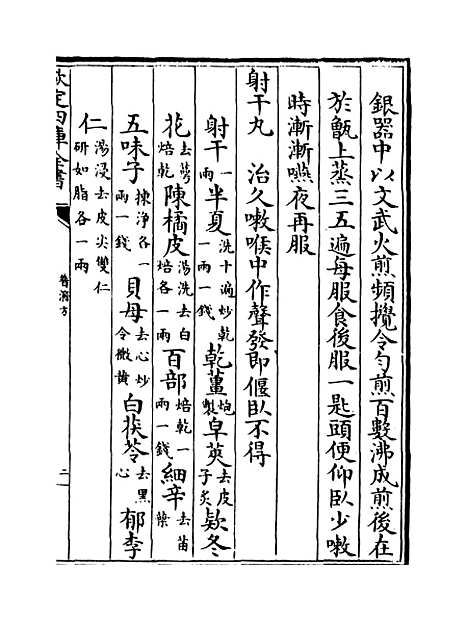 銀器中以文武火煎頻攪令勻煎百數沸成煎後在
於甑上蒸三五遍每服食後服一匙頭便仰臥少嗽
時漸漸嚥夜再服
射干丸　治久嗽喉中作聲發即偃臥不得
射干一兩半夏洗十遍炒乾一兩一錢乾薑炮製皁莢去皮子炙欵冬
花去萼焙乾陳橘皮湯洗去白焙各一兩百部焙乾一兩一錢細辛去苗葉
五味子揀淨各一兩一錢貝母去心炒令微黃白茯苓去黑心郁李
仁湯浸去皮尖雙仁研如脂各一兩
欽定四庫全書
普濟方